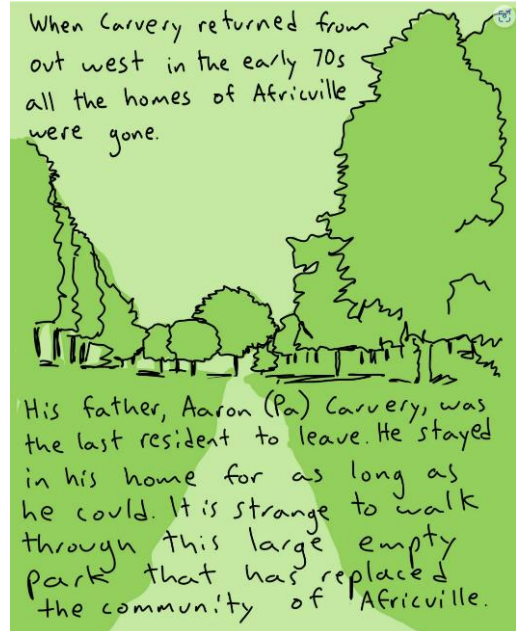 When Carvery returned from
out west in the early 70s
all the homes of Africville
were gone.
His father, Aaron (Pa) Carvery, was
the last resident to leave. He stayed
in his home for as long as
he could. It is strange to walk
through this large empty
park that has replaced
the community of Africville.